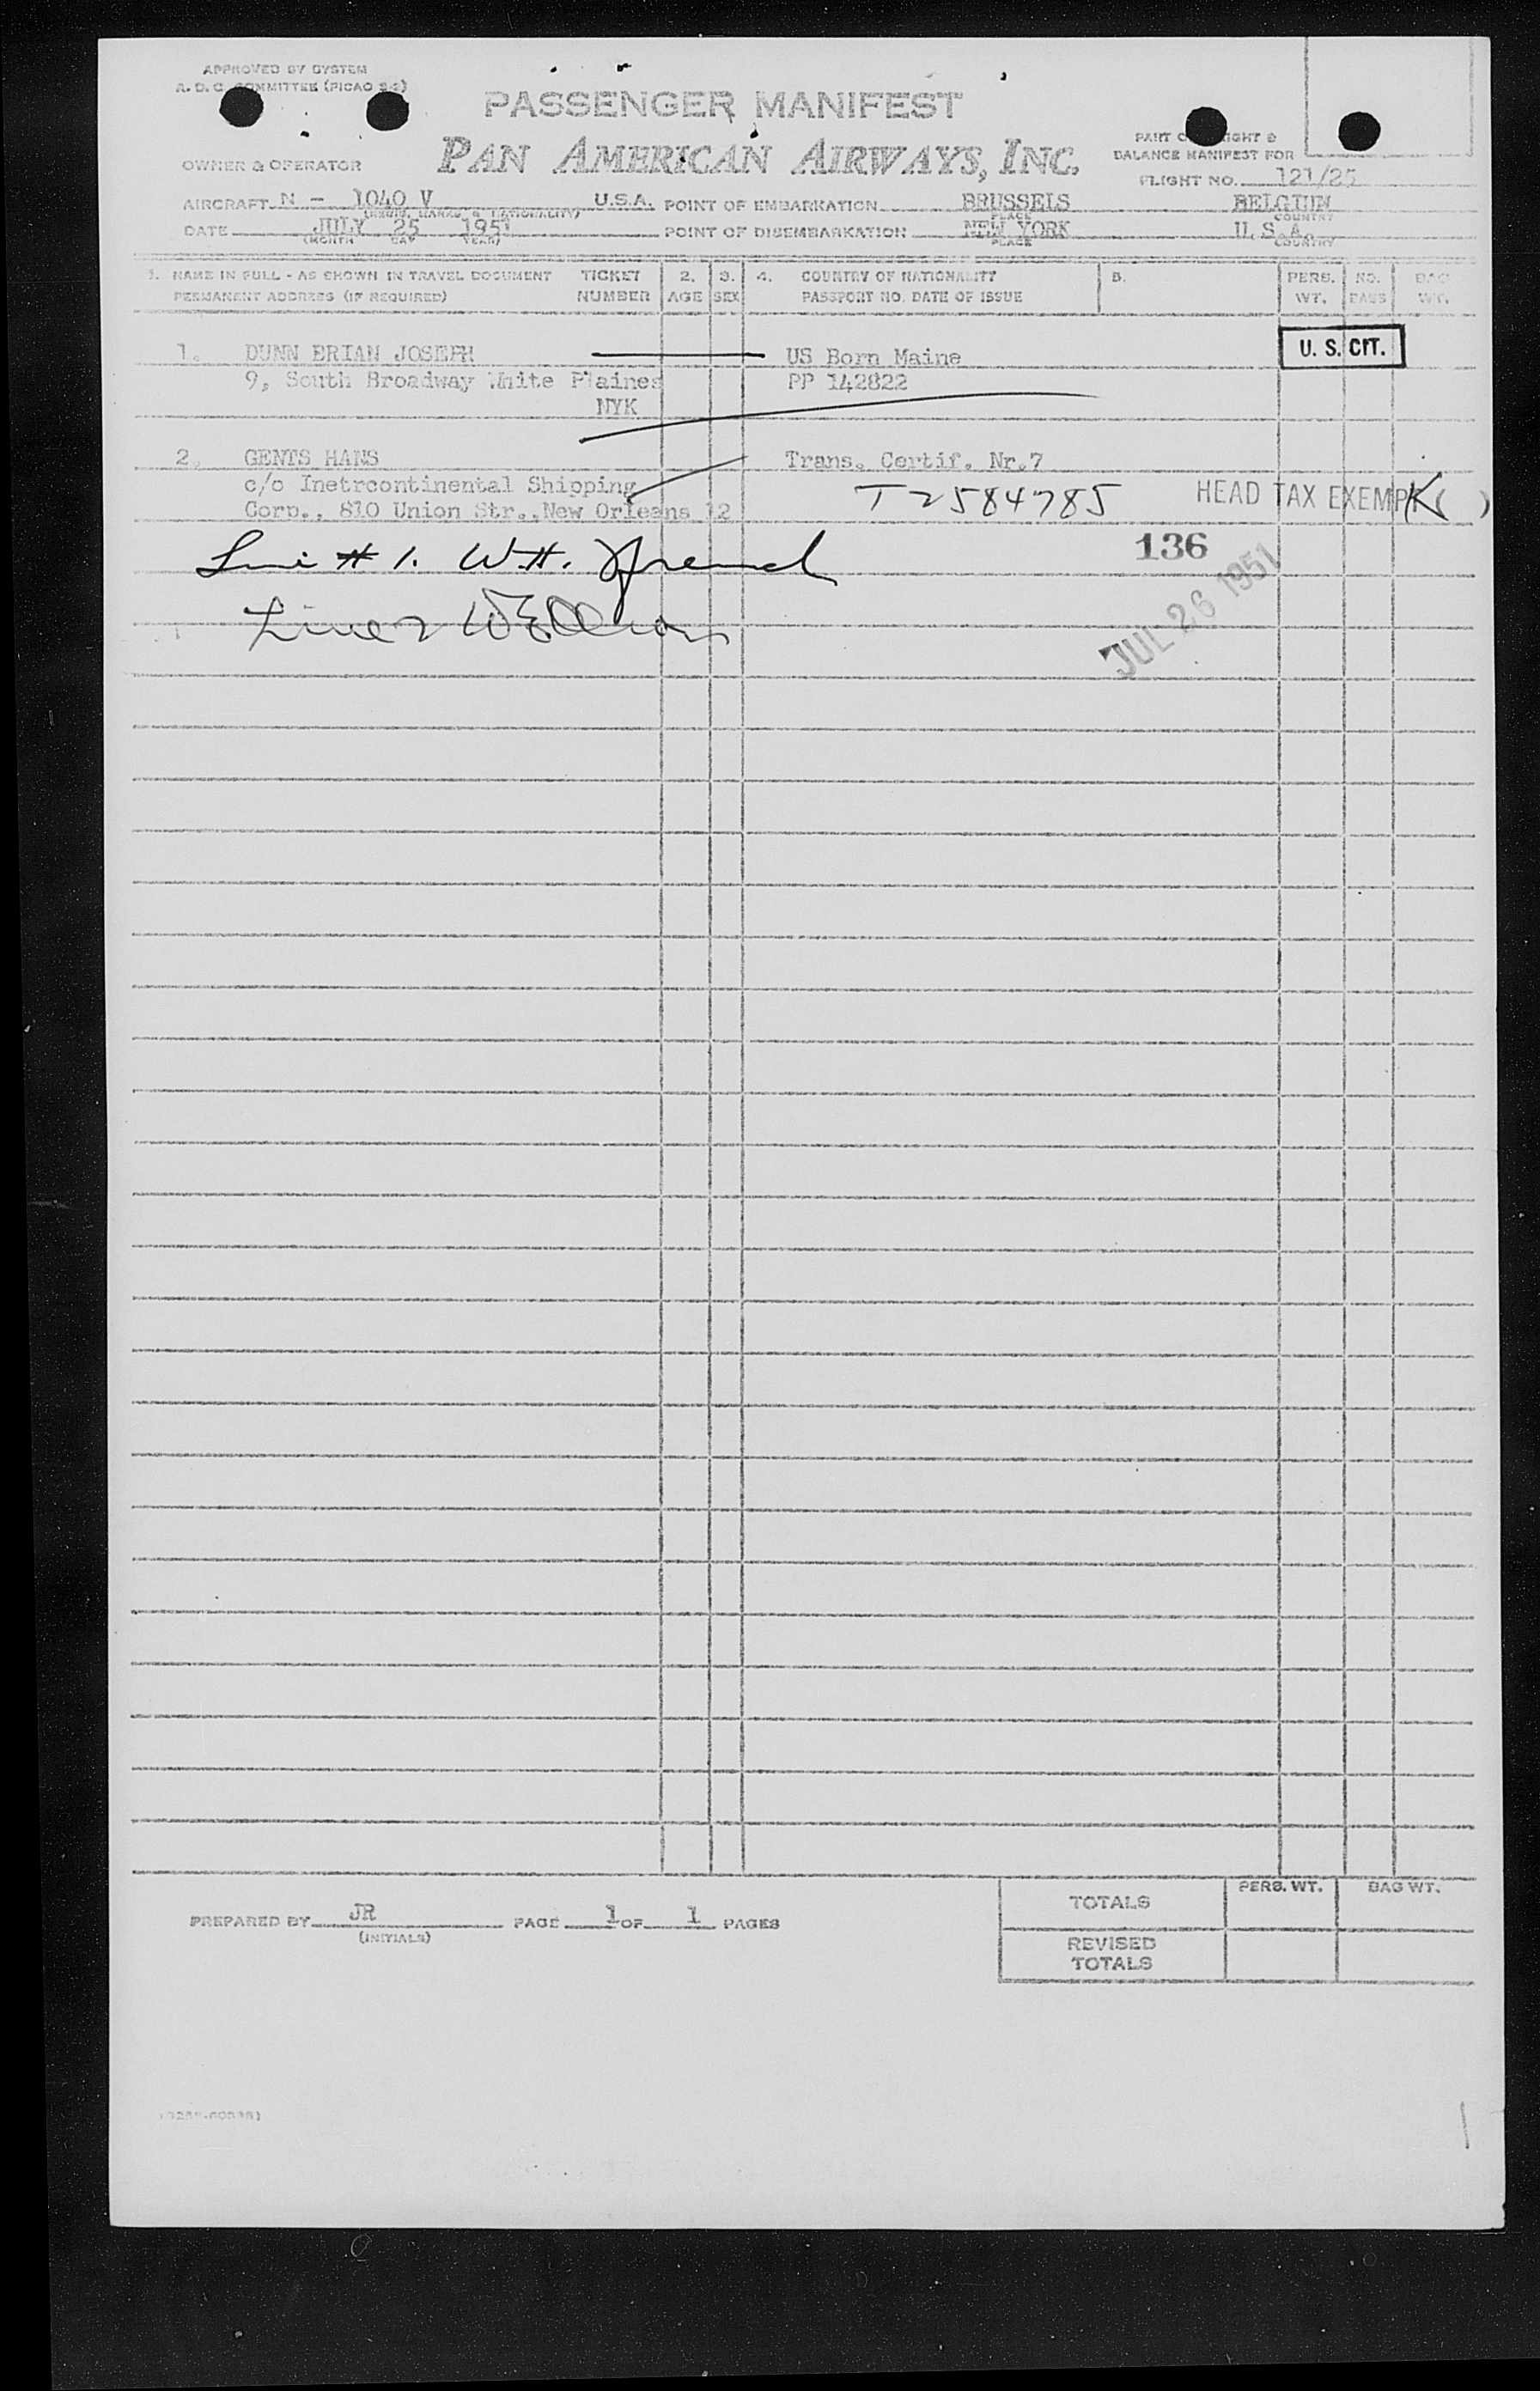 APPROVED BY SYSTEM
A.D.C. COMMITTEE (PICAO
PASSENGER MANIFEST
PAN AMERICAN AIRWAYS, INC.
OWNER & OPERATOR
BALANCE MANIFEST FOR
FLIGHT NO. 121/25
AIRCRAFT N - 1040 V U.S.A. POINT OF EMBARKATION BRUSSELS BELGIUM
(REGIS. MARKS & NATIONALITY) PLACE COUNTRY
DATE JULY 25 1951 POINT OF DISEMBARKATION NEW YORK U.S.A.
(MONTH DAY YEAR) PLACE COUNTRY
1. NAME IN FULL - AS SHOWN IN TRAVEL DOCUMENT TICKET 2. 3. 4. COUNTRY OF NATIONALITY 5. PERS. NO. BAG
PERMANENT ADDRESS (IF REQUIRED) NUMBER AGE SEX PASSPORT NO. DATE OF ISSUE WT. PASS WT.
1. DUNN BRIAN JOSEPH US Born Maine U. S. CIT.
9, South Broadway White Plaines PP 142822
NYK
2. GENTS HANS Trans. Certif. Nr.7
c/o Inetrcontinental Shipping T 2584785 HEAD TAX EXEMPT ( )
Corp., 810 Union Str.,New Orleans 12
Line # 1. W.H. 136
Line 2 JUL 26 1951
PREPARED BY JR PAGE 1 OF 1 PAGES
(INITIALS)
PERS. WT. BAG WT.
TOTALS
REVISED
TOTALS